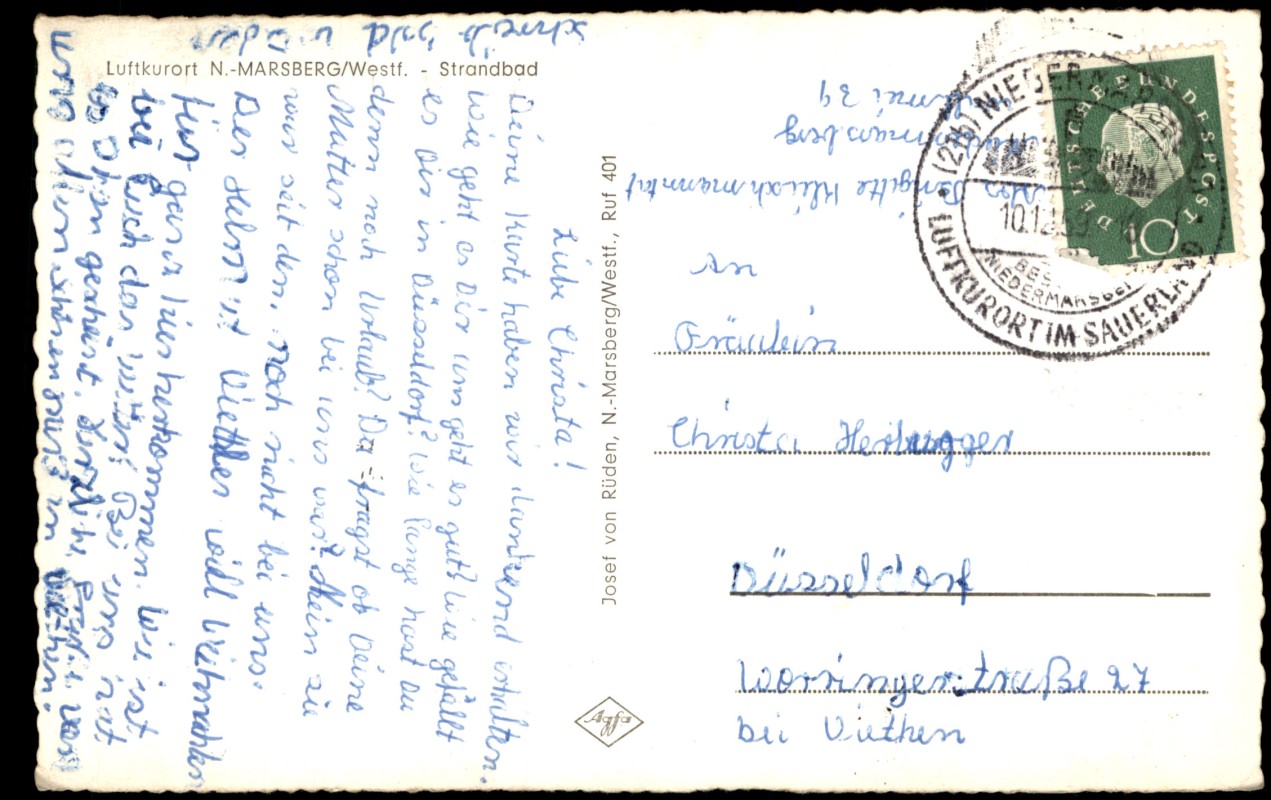 Luftkurort N.-MARSBERG/Westf. - Strandbad
Liebe Christa!
Deine Karte haben wir dankend erhalten.
Wie geht es Dir uns geht es gut! Wie gefällt
es Dir in Düsseldorf? Wie lange hast du
denn noch Urlaub? Du fragst ob Deine
Mutter schon bei uns war? Nein sie
war seit dem, noch nicht bei uns.
Der Helmut Viethen will Weihnachten
für ganz hier herkommen. Wie ist
bei Euch das Wetter? Bei uns hat
es schon geschneit. Herzliche Grüße von
uns allen
schreib bald wieder
Josef von Rüden, N.-Marsberg/Westf., Ruf 401
Agfa
Brigitte
marsberg
39
(21b) NIEDERMARSBERG
10.12.59
BES
NIEDERMARSBERG
LUFTKURORT IM SAUERLAND
DEUTSCHE BUNDESPOST
10
An
Fräulein
Christa
Düsseldorf
Worringerstraße 27
bei Viethen